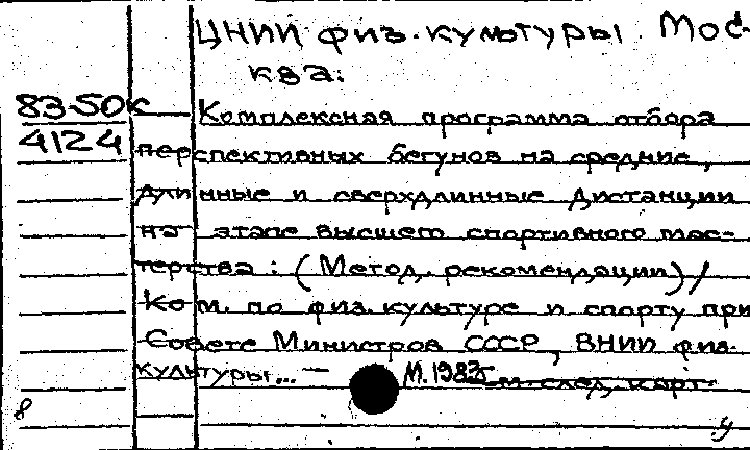 ЦНИИ физ. культуры. Мос-
ква:
83-50к Комплексная программа отбора
4124 перспективных бегунов на средние,
длинные и сверхдлинные дистанции
на этапе высшего спортивного мас-
терства : (Метод. рекомендации) /
Ком. по физ. культуре и спорту при
Совете Министров СССР, ВНИИ физ.
культуры... — М. 1983 см. след. карт.
8